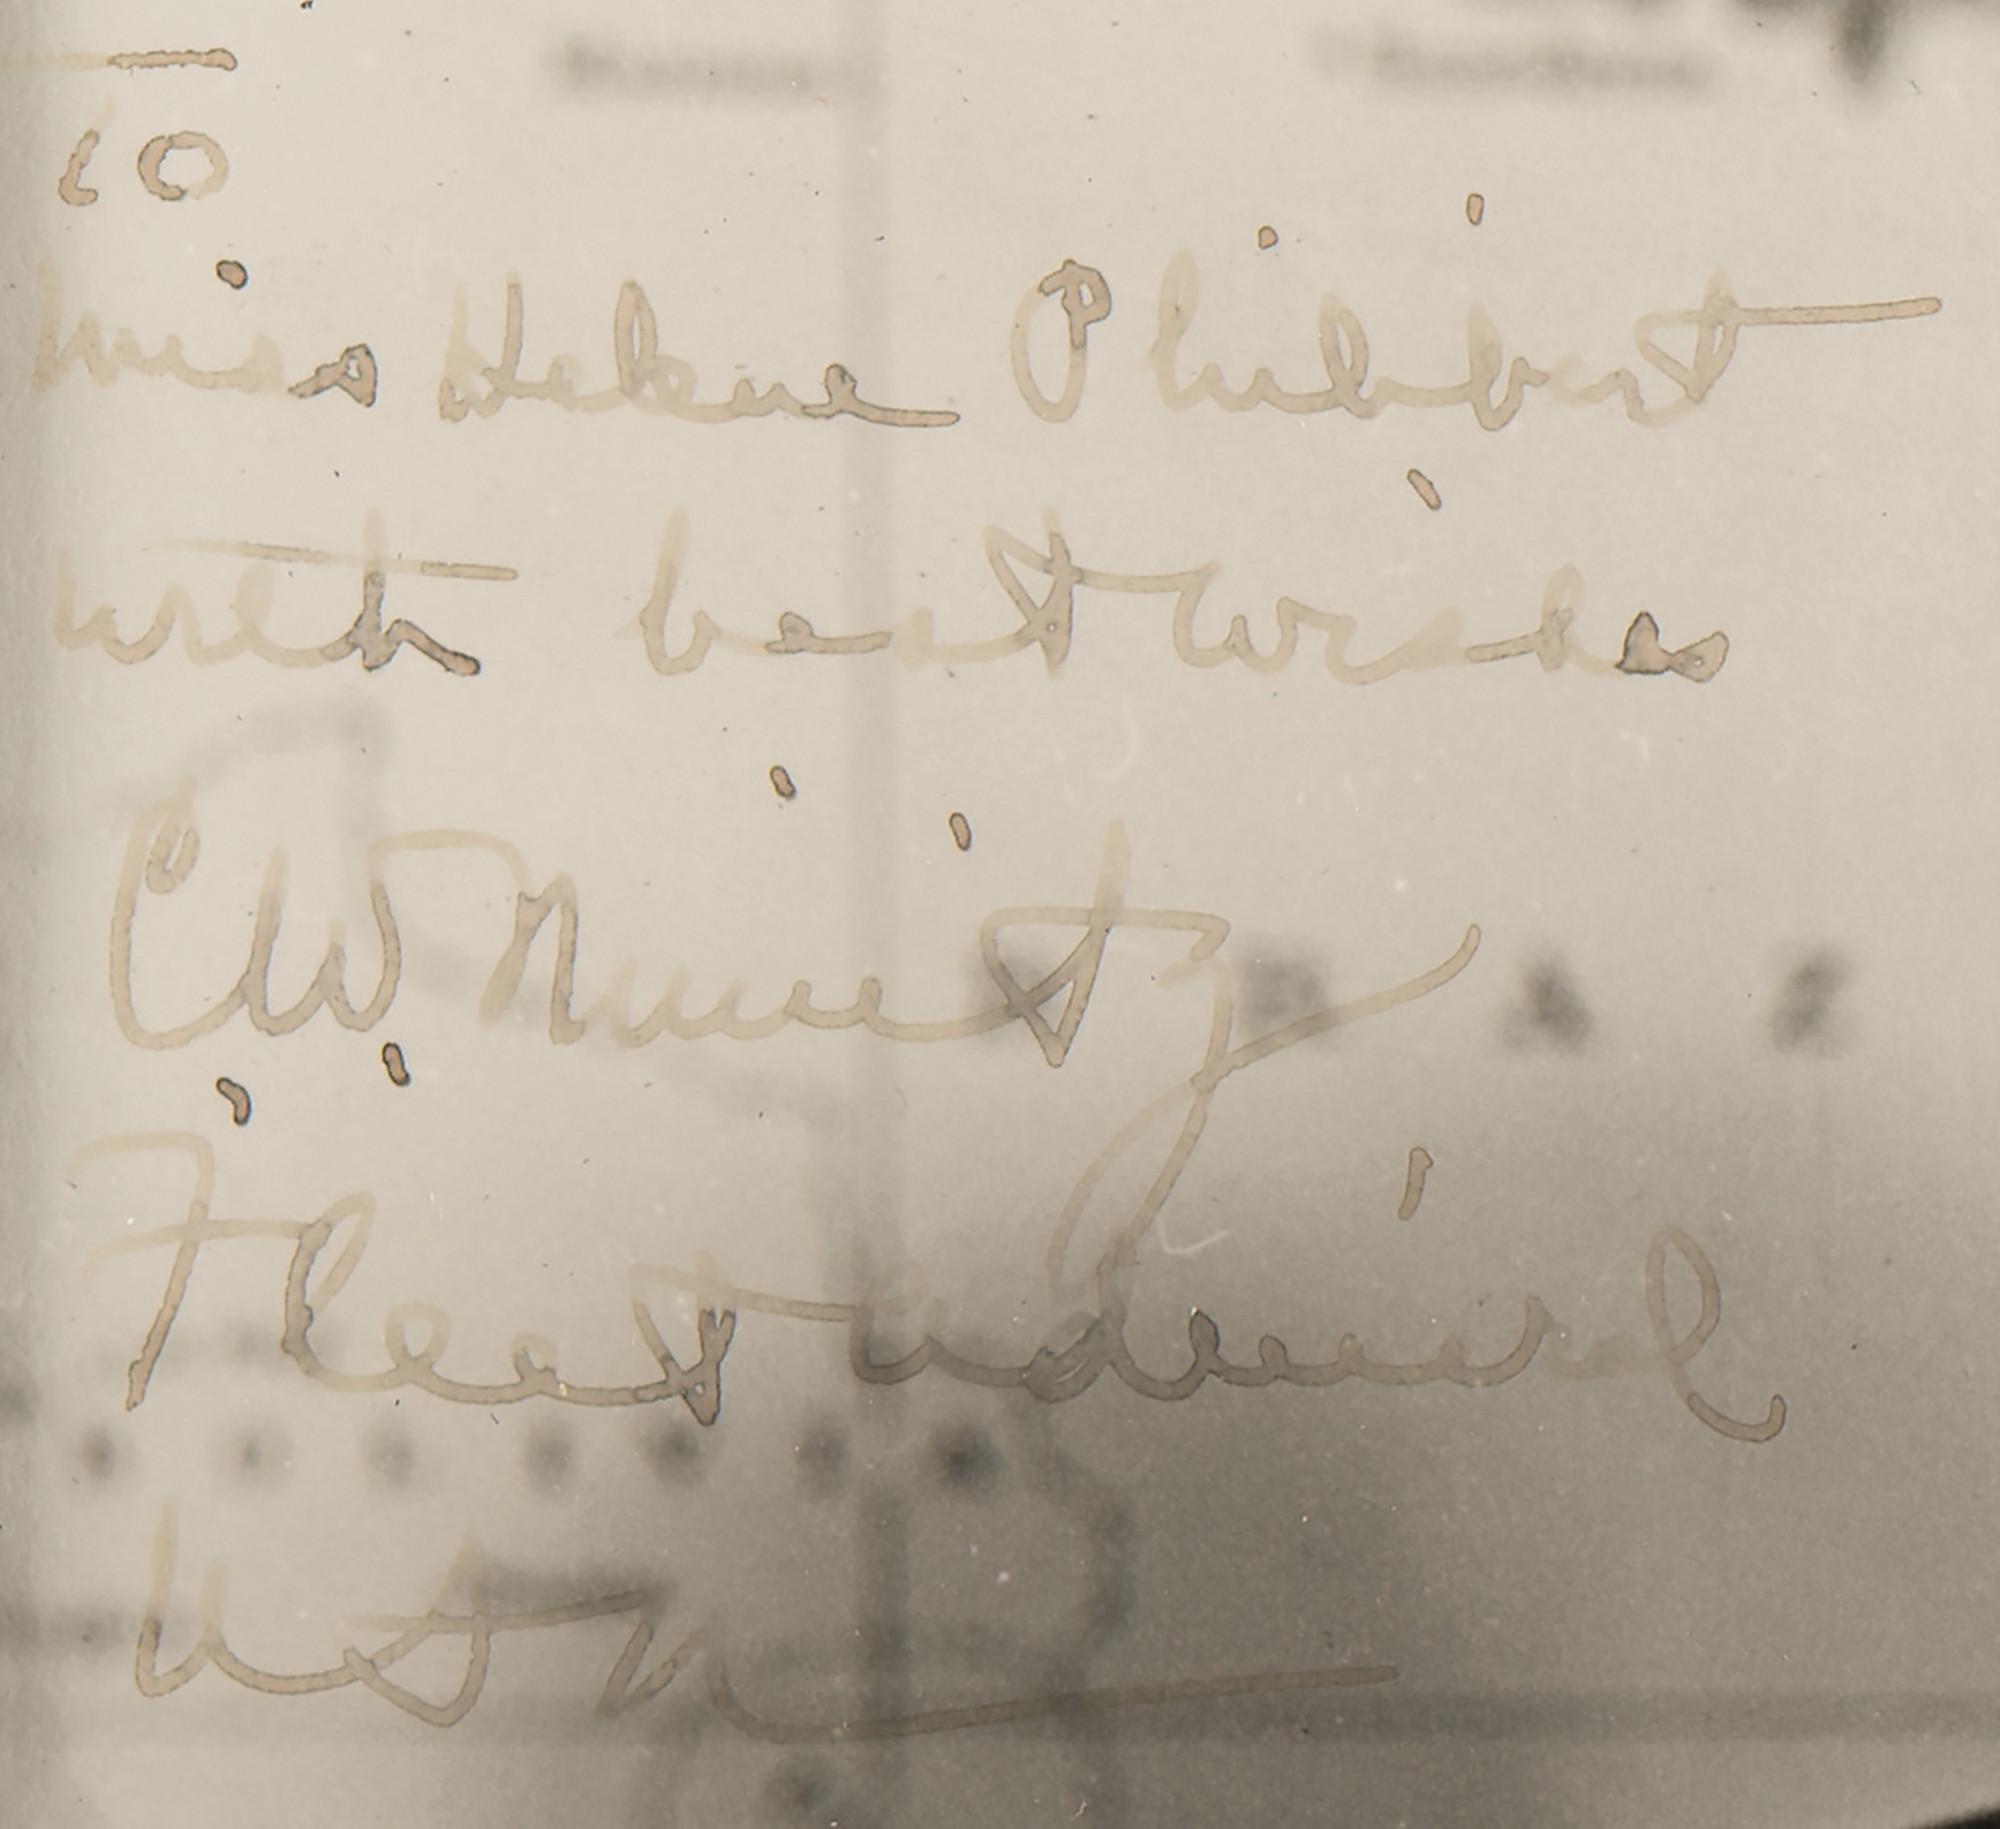 To
Miss Helene Philibert
with best wishes
CW Nimitz
Fleet Admiral
USN